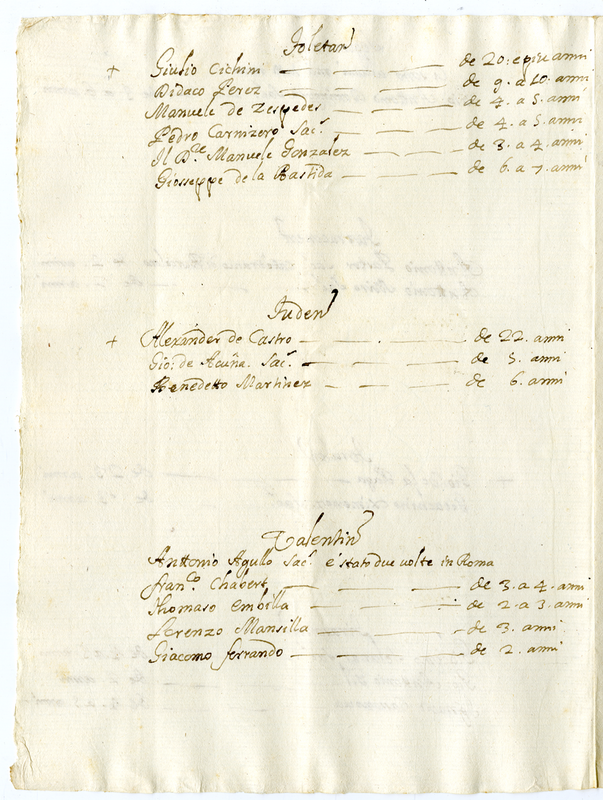 Toletan
+ Giulio Cichini — — — — de 20: e piu anni
Didaco Perez — — — — de 9. a 10. anni
Manuele de Zespedes — — — de 4. a 5. anni
Pedro Carnizero Sac. — — — de 4. a 5. anni
Il D.re Manuele Gonzalez — — — de 3. a 4. anni
Gioseppe de la Bastida — — — de 6. a 7. anni
Tuden
+ Alexander de Castro — — — de 22. anni
Gio: de Acuña. Sac. — — — — de 5. anni
Benedetto Martinez — — — — de 6. anni
Valentin
Anttonio Agullo Sac. é stato due volte in Roma
fran.co Chabert — — — — de 3. a 4. anni
Thomaso Embilla — — — — de 2 a 3. anni
Lorenzo Mansilla — — — — de 3. anni
Giacomo ferrando — — — — de 2. anni